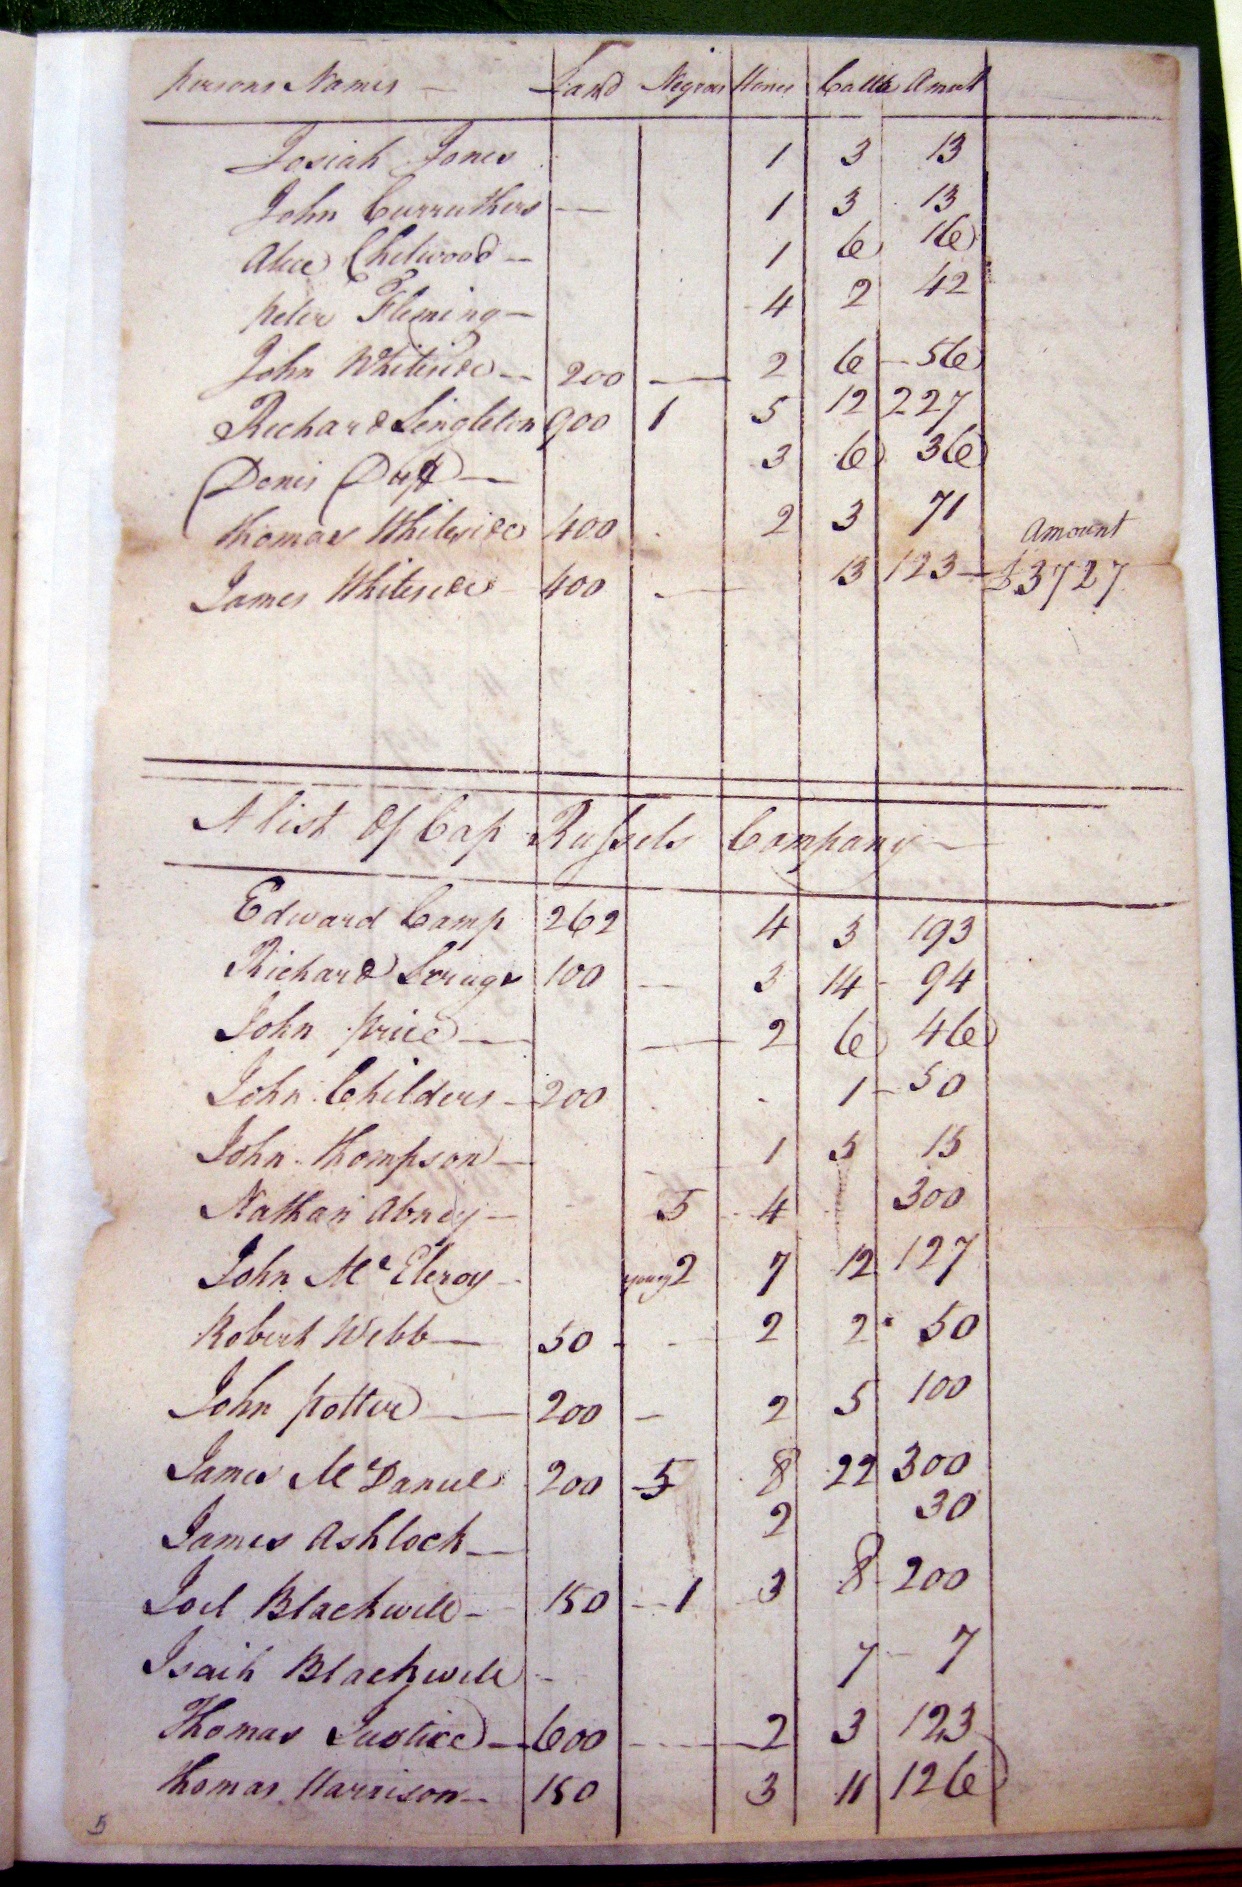 persons Names — Land Negroes Horses Cattle Amout
Josiah Jones 1 3 13
John Curruthers — 1 3 13
Alice Chelwood — 1 6 16
Peter Fleming — 4 2 42
John Whiteside — 200 — 2 6 — 56
Richard Singleton 900 1 5 12 227
Denis — 3 6 36
Thomas Whiteside 400 2 3 71
Amount
James Whiteside 400 — 13 123 — £3727
A list Of Cap Russels Company —
Edward Camp 262 4 3 193
Richard 100 — 3 14 - 94
John price — — 2 6 46
John Childers — 200 . - 1 — 50
John Thompson — 1 5 15
Nathan Abney — 5 4 300
John Mc Elroy - young 2 7 12 127
Robert Webb — 50 - - 2 2 50
John potter — 200 — 2 5 100
James Mc Daniel 200 - 5 8 22 300
James Ashlock — 2 30
Joel Blackwell — 150 - 1 3 8 - 200
Isaih Blackwell - 7 - 7
Thomas Justice — 600 — 2 3 123
Thomas Harrison — 150 3 11 126
5